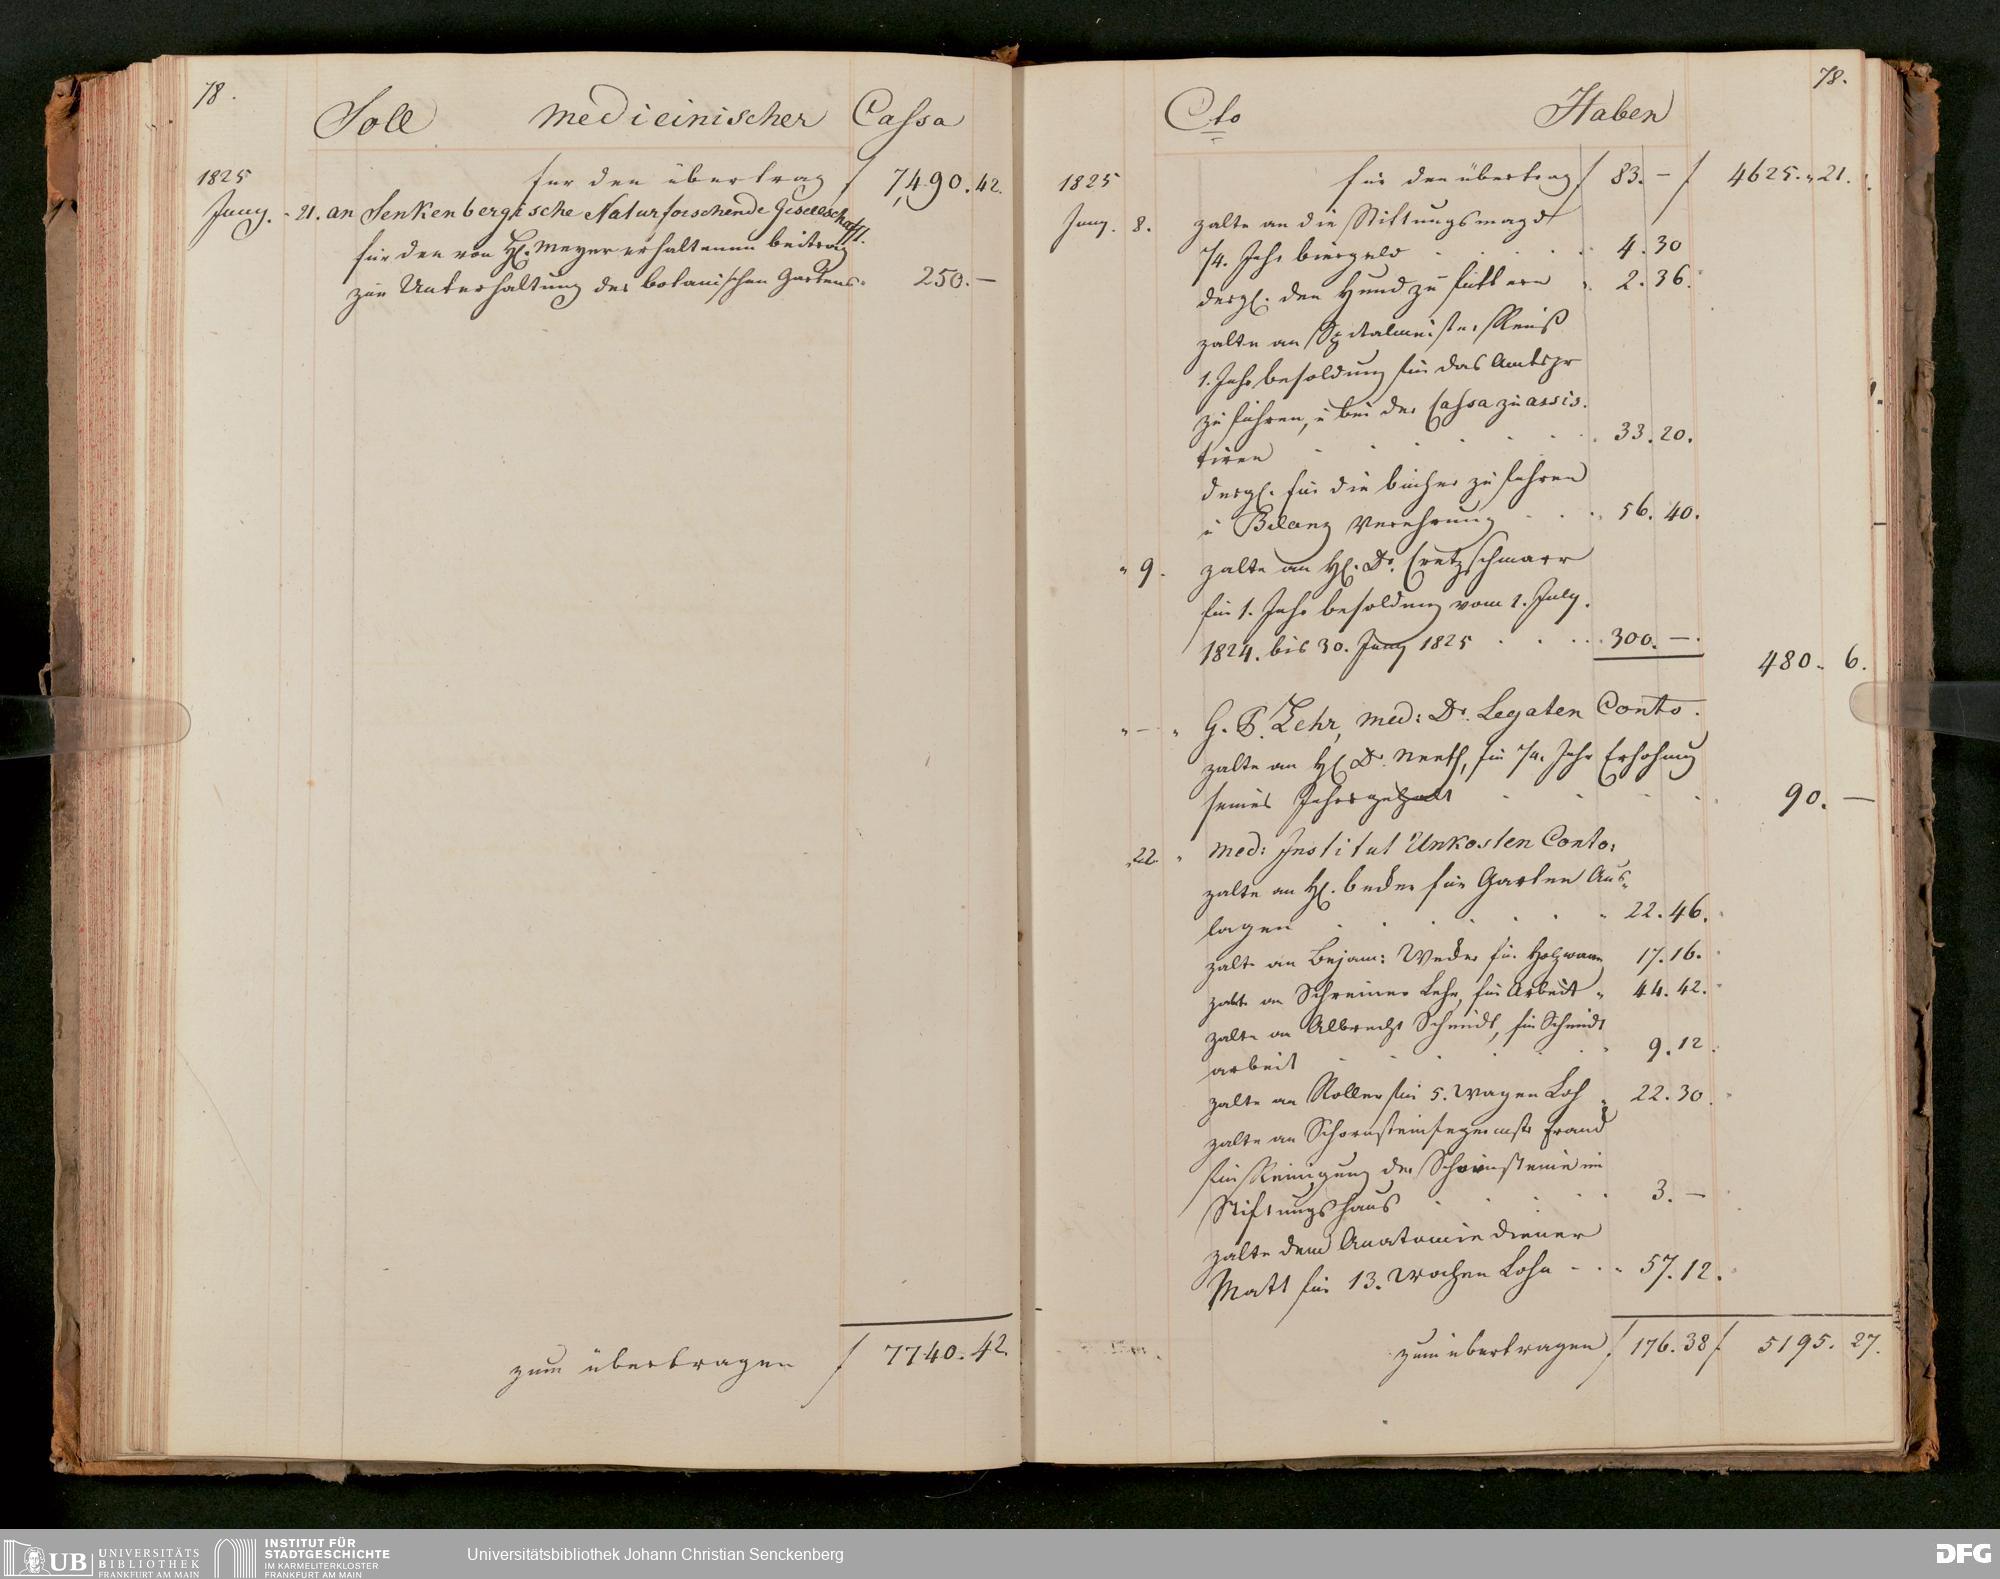 78.
Soll medicinischer Cassa
1825
für den übertrag f 7,490.42.
Juny. - 21. an Senkenbergische Naturforschende Gesellschafft.
für den von H. Meyer erhaltenen beitrag
zur Unterhaltung des botanischen Gartens. 250.—
zum übertragen f 7740.42.
78.
Cto Haben
1825 für den übertrag f 83.— f 4625.„21.
Juny. 8. zalte an die Stiftungsmagd
1/4. Jahr biergeld 4.30
desgl. den Hund zu füttern 2.36.
zalte an Spitalmeister Reiß
1. Jahr besoldung für das Amtspr
zu führen, u bei der Cassa zu assis.
tiren 33.20.
desgl. für die bücher zu führen
u Bilanz Verehrung 56.40.
" 9. zalte an H. Dr. Cretzschmarr
für 1. Jahr besoldung vom 1. July.
1824. bis 30. Juny 1825 300.—.
480. 6.
" — " G. P. Lehr, med: Dr. Legaten Conto.
zalte an H Dr. Neeff, für 1/4. Jahr Erhöhung
seines Jahrsgehalt 90.—
„22. " med: Institut Unkosten Conto.
zalte an H. becker für Garten Aus-
lagen 22.46.
zalte an Bejam: Weder für Holzwaare 17.16.
zalte an Schreiner Lehr, für Arbeit 44.42.
zalte an Albrecht Schmidt, für Schmidt
arbeit 9.12.
zalte an Koller für 5. Wagen Loh 22.30.
zalte an Schornsteinfegermstr Frand
für Reinigung der Schornsteine im
Stiftungshaus 3.—
zalte dem Anatomie diener
Matt für 13. Wochen Lohn 57.12.
zum übertragen f 176.38 f 5195.27.
UB UNIVERSITÄTS
BIBLIOTHEK
FRANKFURT AM MAIN
INSTITUT FÜR
STADTGESCHICHTE
IM KARMELITERKLOSTER
FRANKFURT AM MAIN
Universitätsbibliothek Johann Christian Senckenberg
DFG